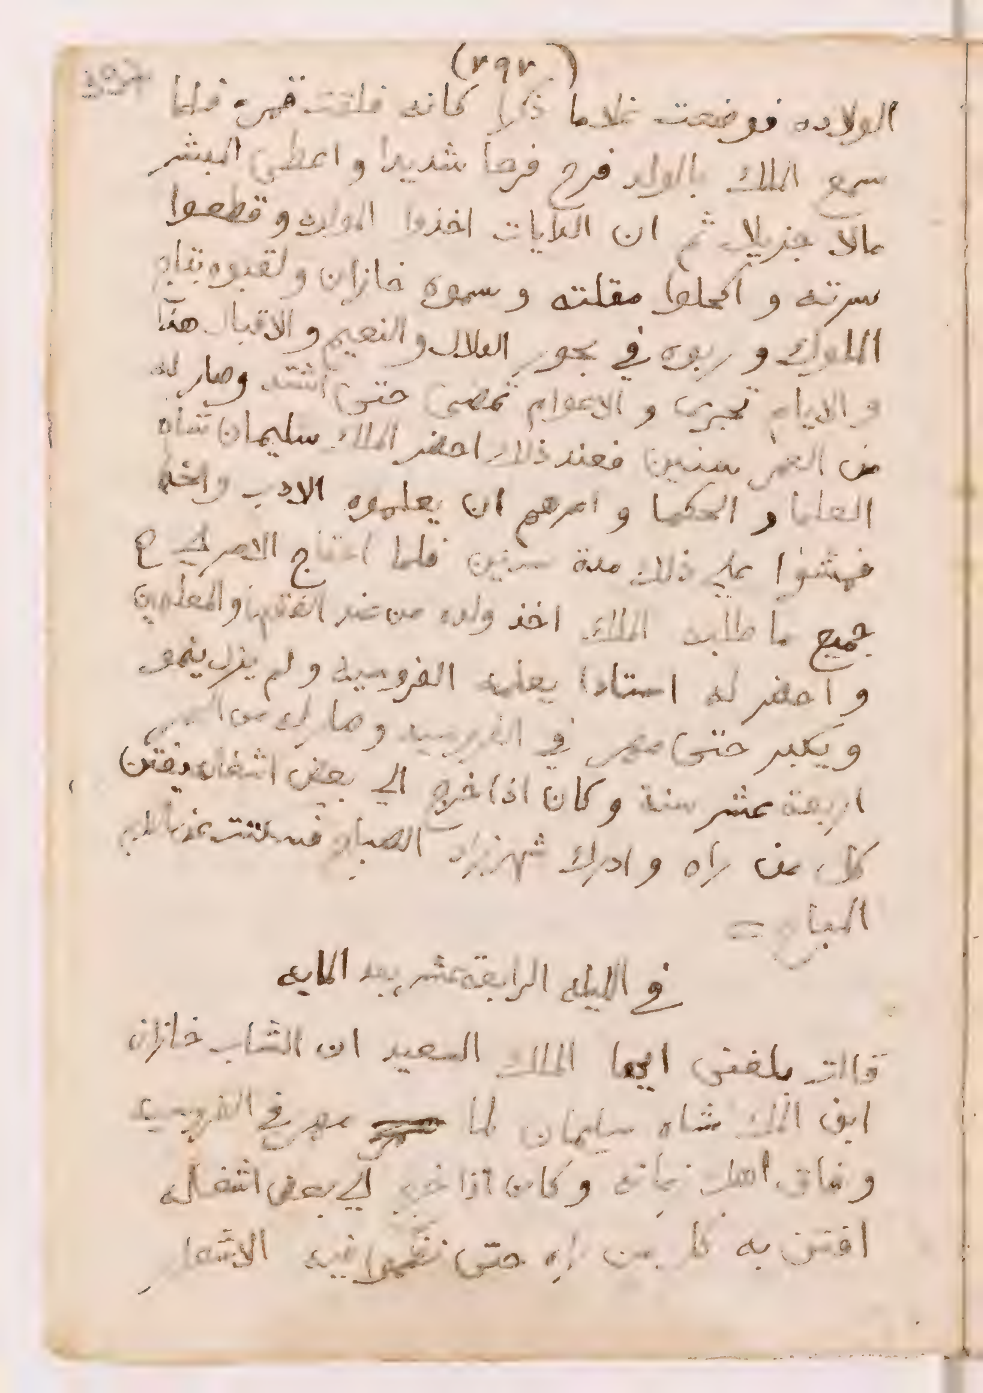 (٢٩٢)
الولاده فوضعت غلاما ذكرا كانه فلقت قمره فلما
سمع الملك بالولد فرح فرحا شديدا و اعطي المبشر
مالا جزيلا ثم ان الدايات اخذوا المولود و قطعوا
سرته و اكحلوا مقلته و سموه خازان و لقبوه بتاج
الملوك و ربوه في بحور الدلال و النعيم و الاقبال هذا
و الايام تجري و الاعوام تمضي حتي اشتد وصار له
من العمر سنين فعند ذلك احضر الملك سليمان شاه
العلما و الحكما و امرهم ان يعلموه الادب و
فمشوا علي ذلك مدة سنين فلما احتاج الامر الي
جميع ما طلبه الملك اخذ ولده من عند الفقها و المعلمين
و احضر له استادا يعلمه الفروسية و لم يزل ينمو
و يكبر حتي مهر في الفروسيه و صار له من العمر
اربعة عشر سنة و كان اذا خرج الي بعض اشغاله يفتتن
كل من راه و ادرك شهرزاد الصباح فسكتت عن الكلام
المباح =
في الليله الرابعة عشر بعد المايه
قالت بلغني ايها الملك السعيد ان الشاب خازان
ابن الملك شاه سليمان لما مهر في الفروسيه
و فاق اهل زمانه و كان اذا خرج الي بعض اشغاله
افتتن به كل من راه حتي نظموا فيه الاشعار